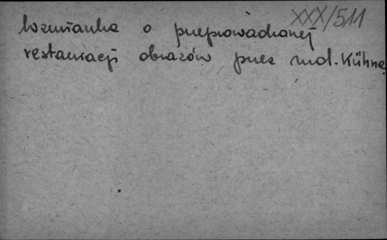 XXX/511
Wzmianka o przeprowadzonej
restauracji obrazów przez mal. Kühna